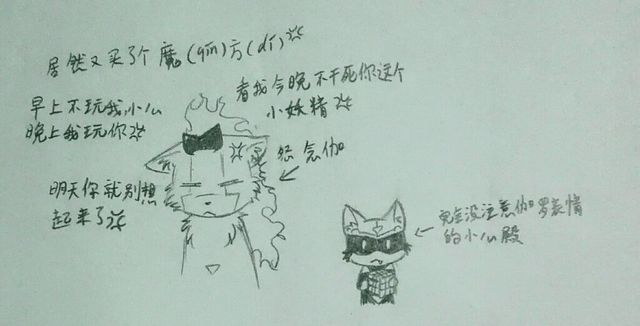 居然又买了个魔(qín)方(dí)
看我今晚不干死你这个
小妖精
早上不玩我,小心
晚上我玩你
怨念伽
明天你就别想
起来了
完全没注意伽罗表情
的小心殿